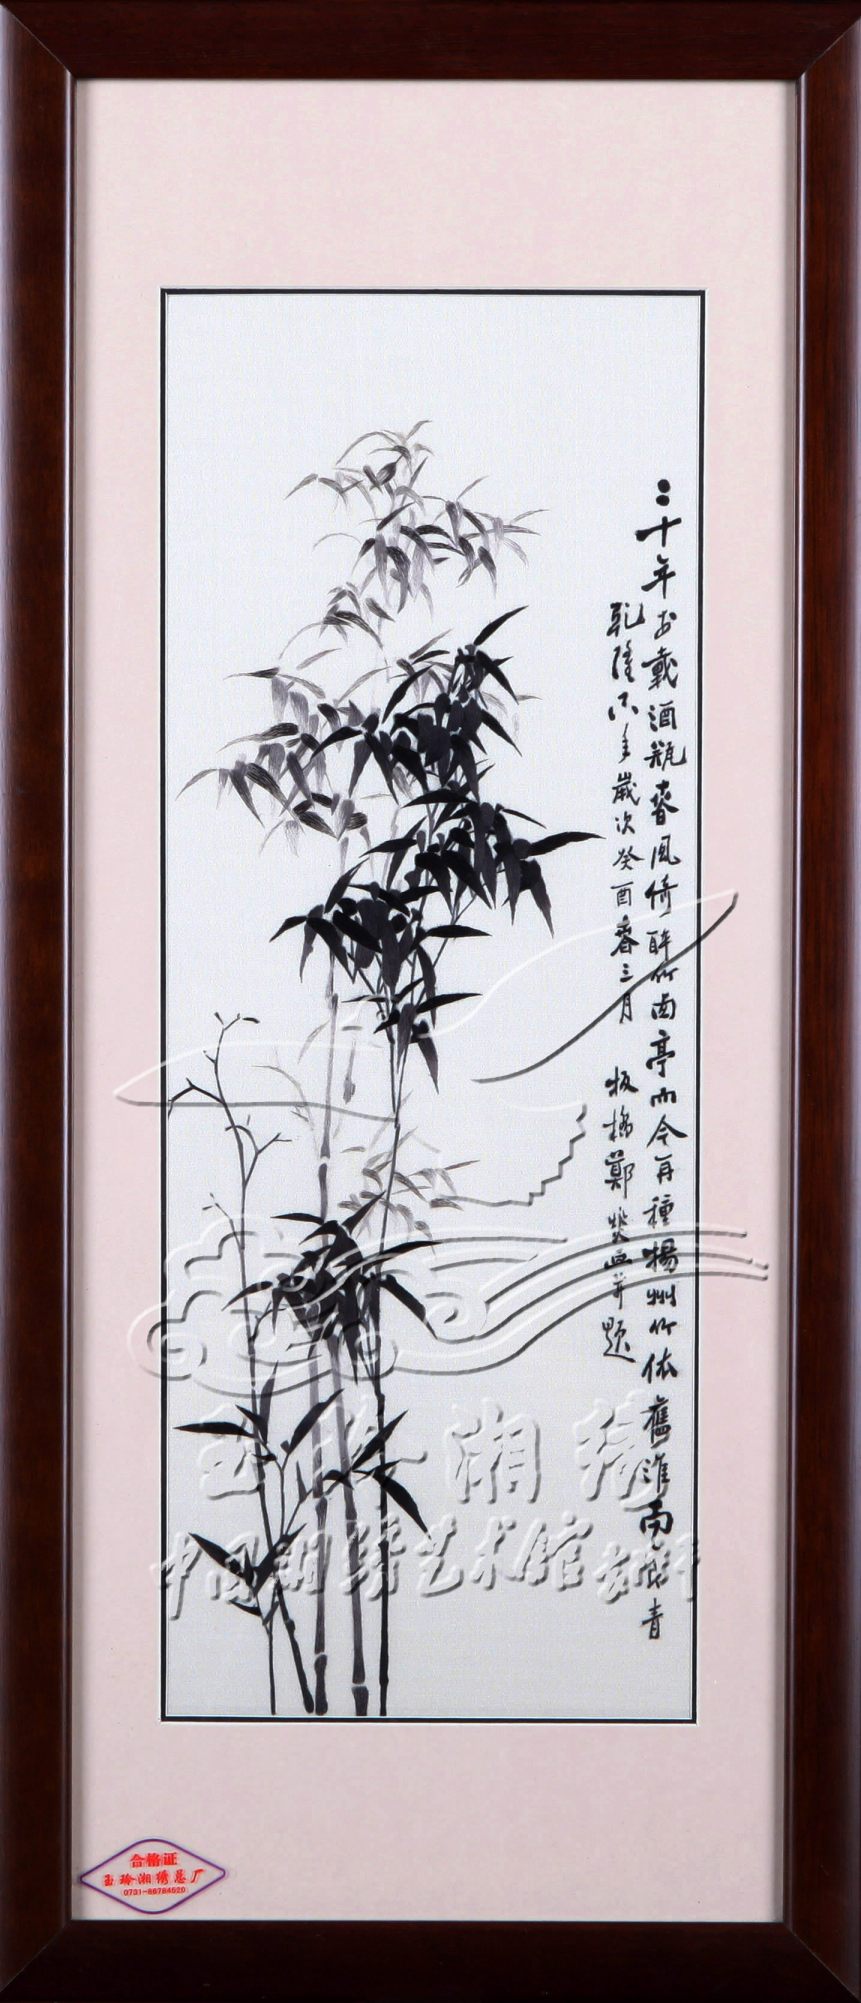 二十年前載酒瓶春風倚醉竹西亭而今再種揚州竹依舊淮南一片青
乾隆十八年歲次癸酉春三月 板橋鄭燮畫并題
玉玲湘绣
中国湘绣艺术馆
合格证
玉玲湘绣总厂
0731-86784520